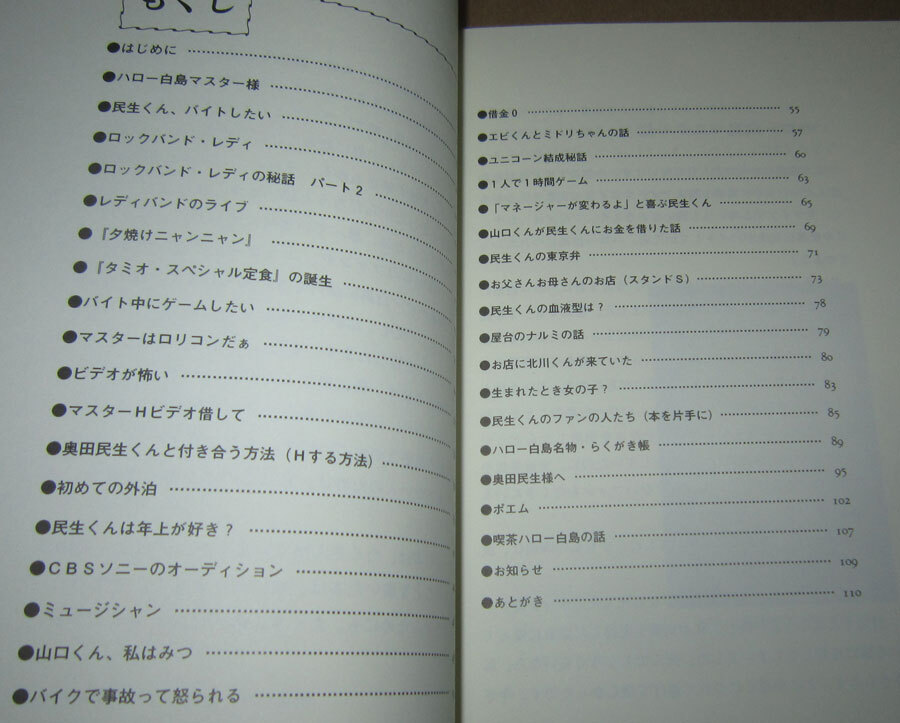 もくじ
●はじめに
●ハロー白島マスター様
●民生くん、バイトしたい
●ロックバンド・レディ
●ロックバンド・レディの秘話　パート2
●レディバンドのライブ
●『夕焼けニャンニャン』
●『タミオ・スペシャル定食』の誕生
●バイト中にゲームしたい
●マスターはロリコンだぁ
●ビデオが怖い
●マスターHビデオ借して
●奥田民生くんと付き合う方法（Hする方法)
●初めての外泊
●民生くんは年上が好き？
●CBSソニーのオーディション
●ミュージシャン
●山口くん、私はみつ
●バイクで事故って怒られる
●借金0 55
●エビくんとミドリちゃんの話 57
●ユニコーン結成秘話 60
●1人で1時間ゲーム 63
●「マネージャーが変わるよ」と喜ぶ民生くん 65
●山口くんが民生くんにお金を借りた話 69
●民生くんの東京弁 71
●お父さんお母さんのお店（スタンドS） 73
●民生くんの血液型は？ 78
●屋台のナルミの話 79
●お店に北川くんが来ていた 80
●生まれたとき女の子？ 83
●民生くんのファンの人たち（本を片手に） 85
●ハロー白島名物・らくがき帳 89
●奥田民生様へ 95
●ポエム 102
●喫茶ハロー白島の話 107
●お知らせ 109
●あとがき 110